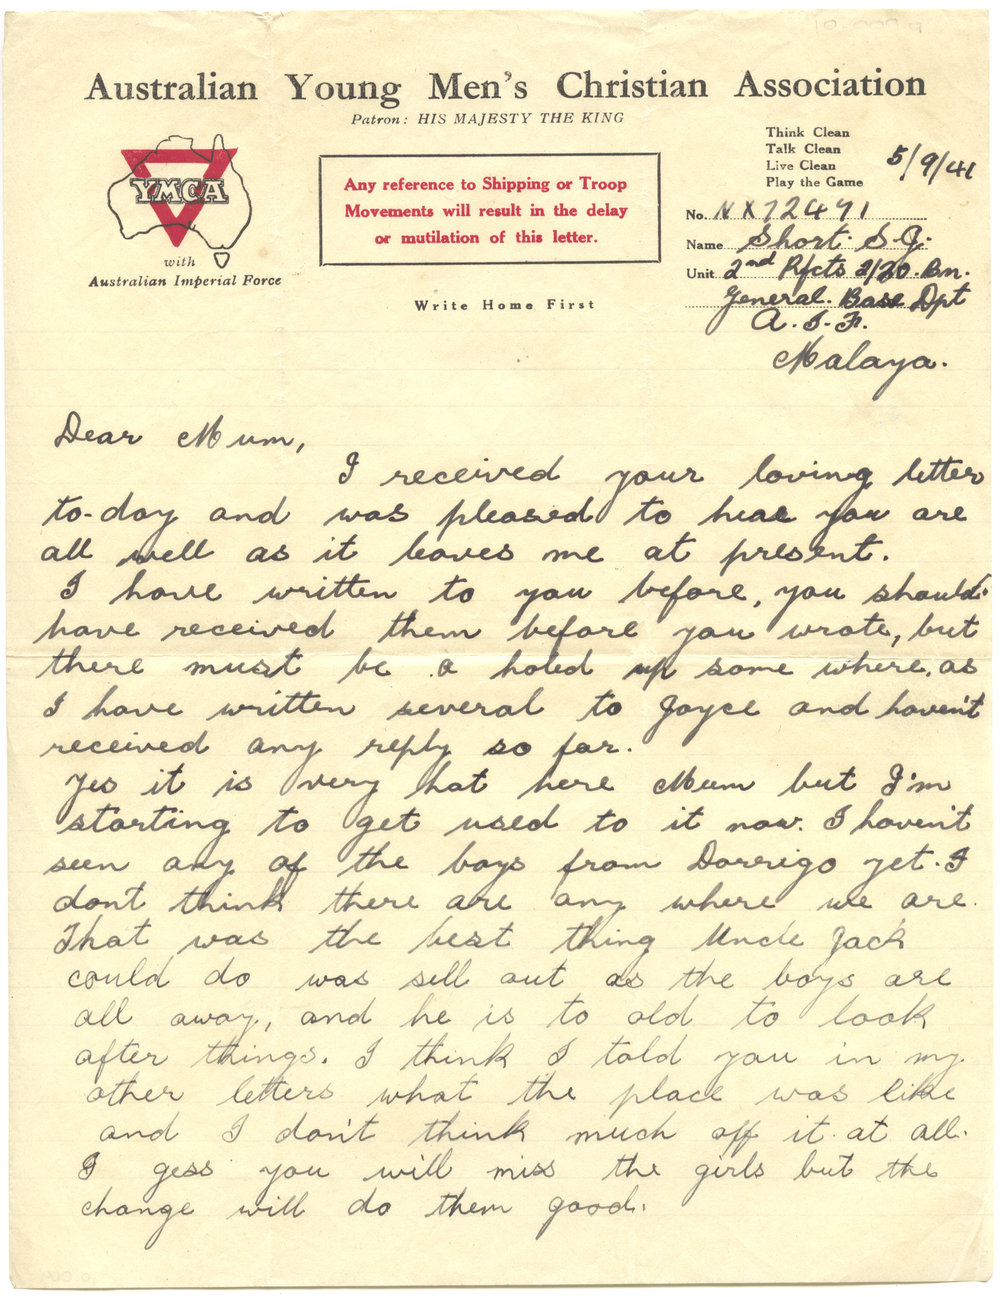 Australian Young Men's Christian Association
Patron: HIS MAJESTY THE KING
YMCA
with
Australian Imperial Force
Any reference to Shipping or Troop
Movements will result in the delay
or mutilation of this letter.
Write Home First
Think Clean
Talk Clean
Live Clean
Play the Game
5/9/41
No. NX72491
Name Short. S.G.
Unit 2nd Rfcts 2/20. Bn.
General. Base Dpt
A.I.F.
Malaya.
Dear Mum,
I received your loving letter
to-day and was pleased to hear you are
all well as it leaves me at present.
I have written to you before, you should
have received them before you wrote, but
there must be a holed up some where, as
I have written several to Joyce and haven't
received any reply so far.
Yes it is very hat here Mum but I'm
starting to get used to it now. I haven't
seen any of the boys from Dorrigo yet. I
don't think there are any where we are.
That was the best thing Uncle Jack
could do was sell out as the boys are
all away, and he is to old to look
after things. I think I told you in my
other letters what the place was like
and I don't think much off it at all.
I gess you will miss the girls but the
change will do them good.